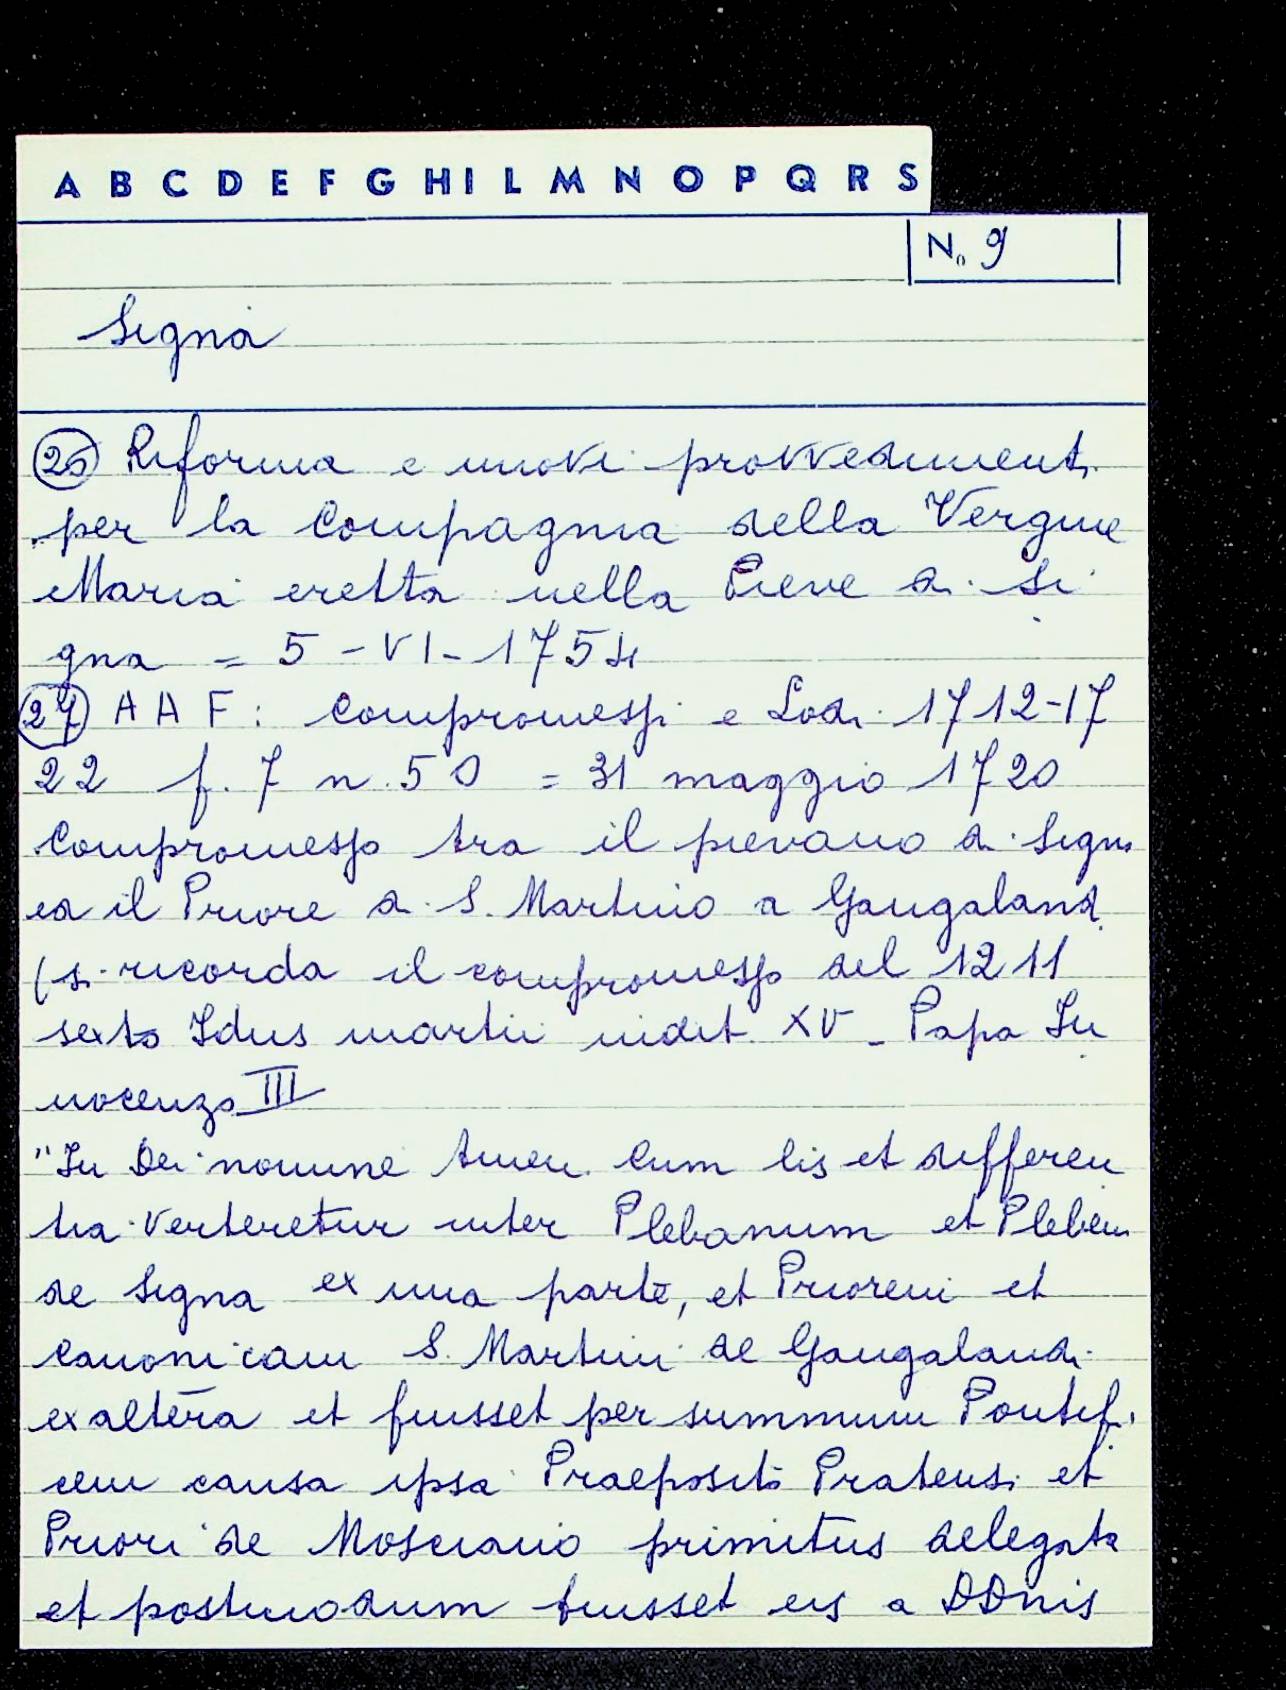 A B C D E F G H I L M N O P Q R S
N. 9
Signa
26 Riforma e nuovi provvedimenti
per la Compagnia della Vergine
Maria eretta nella Pieve di Si
gna = 5-VI-1754
27 AAF: Compromessi e Lodi 1712-17
22 f. 7 n. 50 = 31 maggio 1720
Compromesso tra il pievano di Signa
ed il Priore di S. Martino a Gangalandi
(si ricorda il compromesso del 1211
sexto Idus martii indit. XV - Papa In
nocenzo III
"In Dei nomine Amen. Cum lis et differen
tia verteretur inter Plebanum et Plebem
de Signa ex una parte, et Priorem et
Canonicam S. Martini de Gangalandi
ex altera et fuisset per summum Pontifi
cem causa ipsa Praeposito Pratensi et
Priori de Mosciano primitus delegata
et postmodum fuisset eis a DDnis